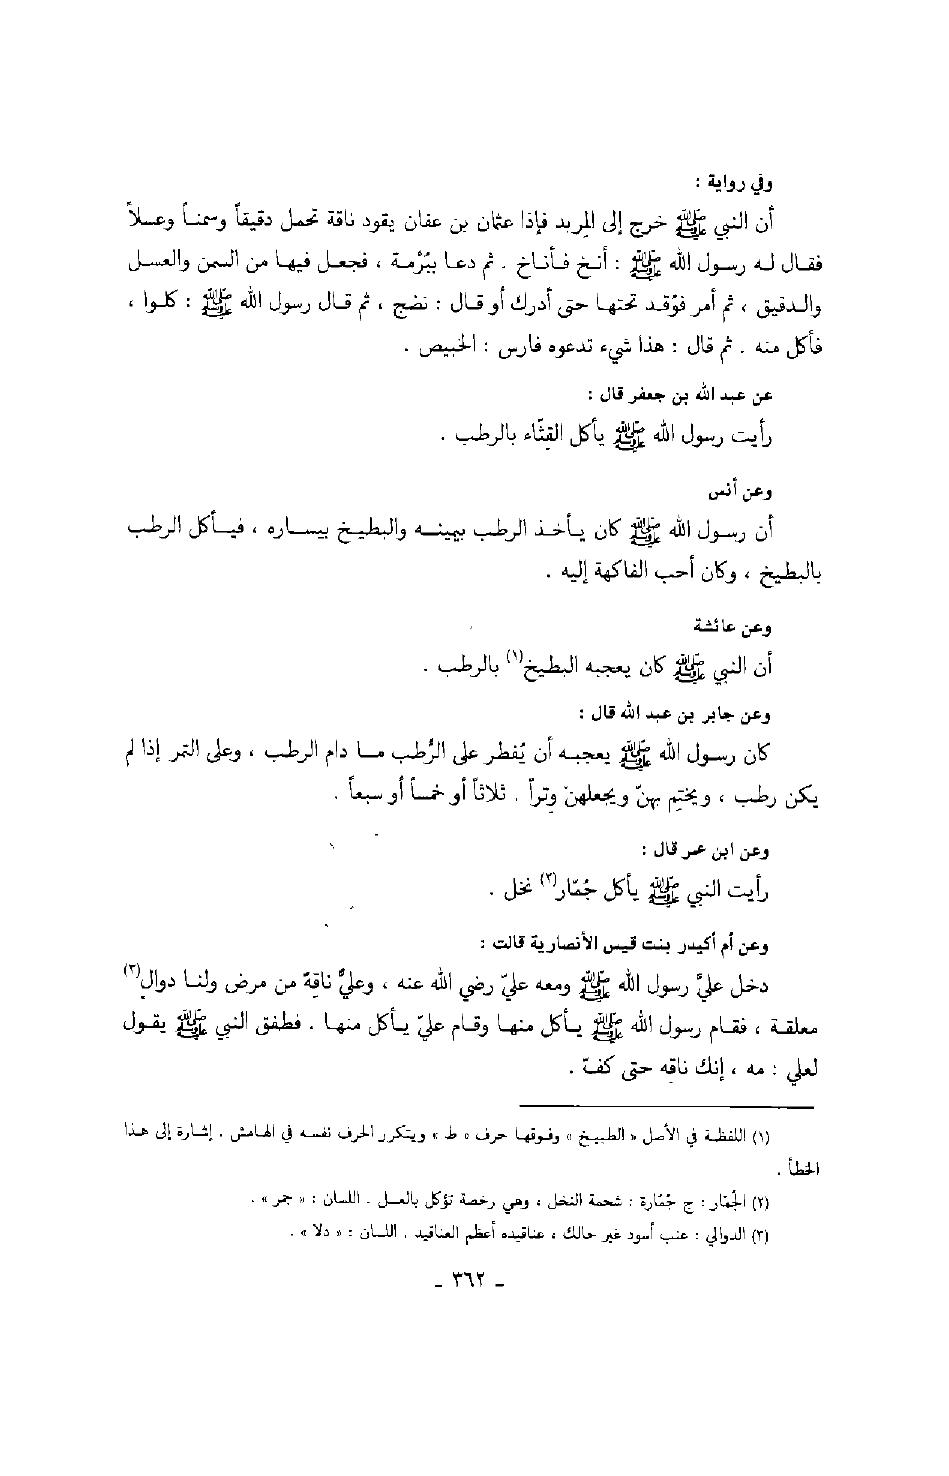 وفي رواية :
أن النبي ﷺ خرج إلى المربد فإذا عثمان بن عفان يقود ناقة تحمل دقيقاً وسمناً وعسلاً
فقال له رسول الله ﷺ : أنخ فأناخ . ثم دعا ببُرْمة ، فجعل فيها من السمن والعسل
والدقيق ، ثم أمر فوُقد تحتها حتى أدرك أو قال : نضج ، ثم قال رسول الله ﷺ : كلوا ،
فأكل منه . ثم قال : هذا شيء تدعوه فارس : الخبيص .
عن عبد الله بن جعفر قال :
رأيت رسول الله ﷺ يأكل القِثّاء بالرطب .
وعن أنس
أن رسول الله ﷺ كان يأخذ الرطب بيمينه والبطيخ بيساره ، فيأكل الرطب
بالبطيخ ، وكان أحب الفاكهة إليه .
وعن عائشة
أن النبي ﷺ كان يعجبه البطيخ(١) بالرطب .
وعن جابر بن عبد الله قال :
كان رسول الله ﷺ يعجبه أن يُفطر على الرُّطب ما دام الرطب ، وعلى التمر إذا لم
يكن رطب ، ويختِم بهنّ ويجعلهنّ وِتراً . ثلاثاً أو خمساً أو سبعاً .
وعن ابن عمر قال :
رأيت النبي ﷺ يأكل جُمّار(٢) نخل .
وعن أم أكيدر بنت قيس الأنصارية قالت :
دخل عليَّ رسول الله ﷺ ومعه عليّ رضي الله عنه ، وعليٌّ ناقِهٌ من مرض ولنا دوالٍ(٣)
معلقة ، فقام رسول الله ﷺ يأكل منها وقام عليّ يأكل منها . فطفق النبي ﷺ يقول
لعلي : مه ، إنك ناقه حتى كفّ .
(١) اللفظة في الأصل « الطبيخ » وفوقها حرف « ط » ويتكرر الحرف نفسه في الهامش . إشارة إلى هذا
الخطأ .
(٢) الجُمّار : ج جُمّارة : شحمة النخل ، وهي رخصة تؤكل بالعسل . اللسان : « جمر » .
(٣) الدوالي : عنب أسود غير حالك ، عناقيده أعظم العناقيد . اللسان : « دلا » .
- ٣٦٢ -